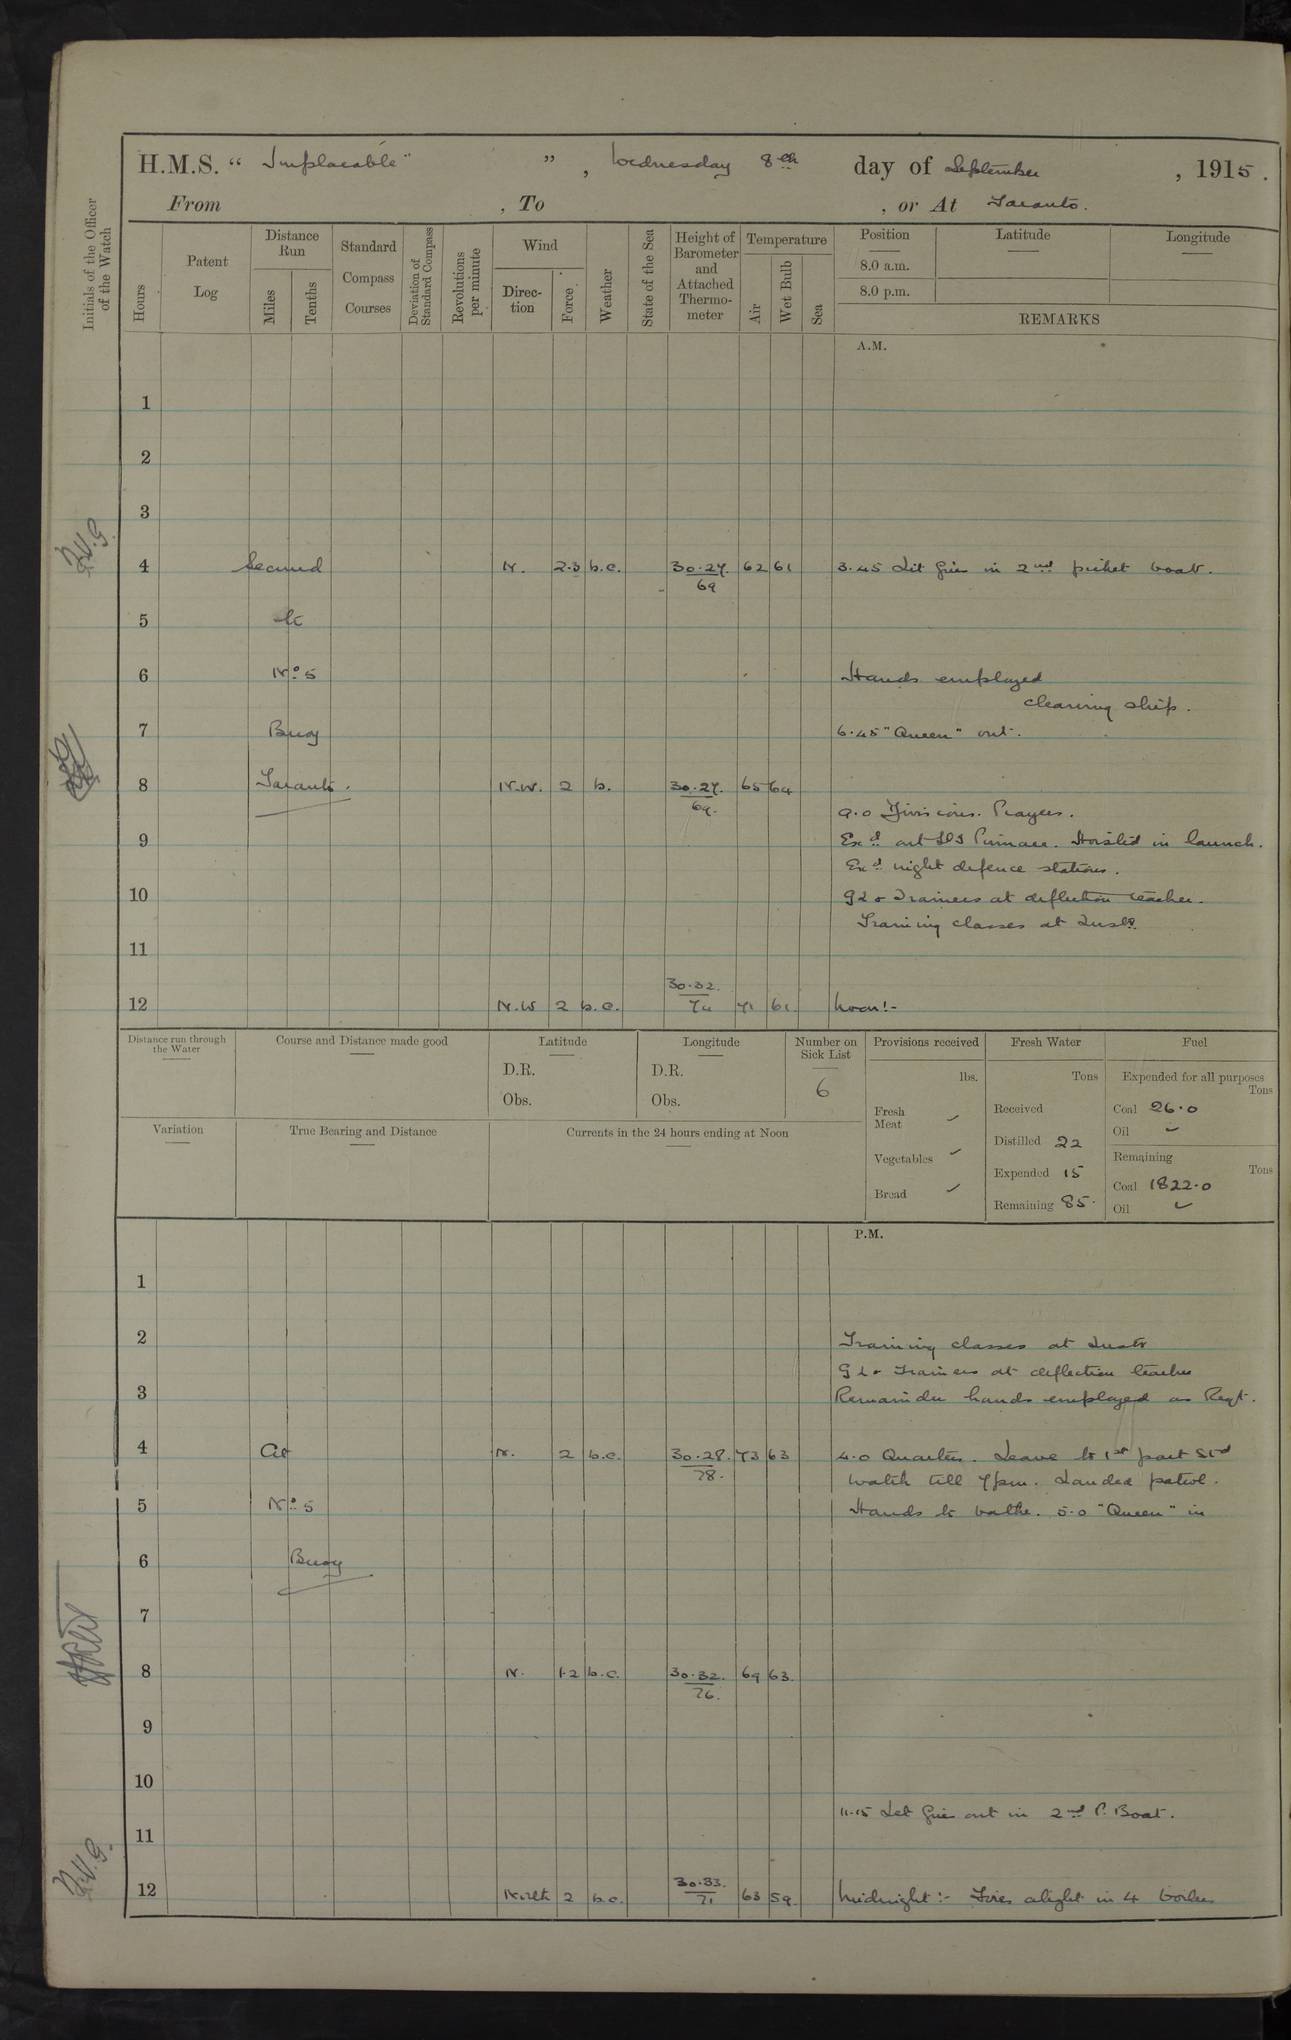 H.M.S. “ Implacable ” , Wednesday 8th day of September , 1915 .
From , To , or At Taranto.
Initials of the Officer of the Watch
Hours
Patent Log
Distance Run
Miles
Tenths
Standard Compass Courses
Deviation of Standard Compass
Revolutions per minute
Wind
Direction
Force
Weather
State of the Sea
Height of Barometer and Attached Thermometer
Temperature
Air
Wet Bulb
Sea
Position
8.0 a.m.
8.0 p.m.
Latitude
Longitude
REMARKS
A.M.
1
2
3
4 Secured N. 2.3 b.c. 30.27. 69 62 61 3.45 Lit fires in 2nd picket boat.
5 to
6 No. 5 Hands employed
cleaning ship.
7 Buoy 6.45 "Queen" out.
8 Taranto. N.W. 2 b. 30.27. 69. 65 64
9.0 Divisions. Prayers.
9 Exd. out Pinnace. Hoisted in launch.
Exd. night defence stations.
10 G L & Trainers at deflection teacher.
Training classes at Instr.
11
12 N.W 2 b.c. 30.32. 74 71 61. Noon:-
Distance run through the Water
Course and Distance made good
Latitude
D.R.
Obs.
Longitude
D.R.
Obs.
Number on Sick List
6
Provisions received
lbs.
Fresh Meat ✓
Vegetables ✓
Bread ✓
Fresh Water
Tons
Received
Distilled 22
Expended 15
Remaining 85.
Fuel
Expended for all purposes
Tons
Coal 26.0
Oil ✓
Remaining
Tons
Coal 1822.0
Oil ✓
Variation
True Bearing and Distance
Currents in the 24 hours ending at Noon
P.M.
1
2 Training classes at Instr
G L & Trainers at deflection teacher
3 Remainder hands employed as Reqt.
4 At N. 2 b.c. 30.28. 78. 73 63 4.0 Quarters. Leave to 1st part Stbd
watch till 7pm. Landed patrol.
5 No. 5 Hands to bathe. 5.0 "Queen" in
6 Buoy
7
8 N. 1.2 b.c. 30.32. 76. 69 63.
9
10
11.15 Let fires out in 2nd P. Boat.
11
12 North 2 b.c. 30.33. 71 63 59. Midnight:- Fires alight in 4 boilers